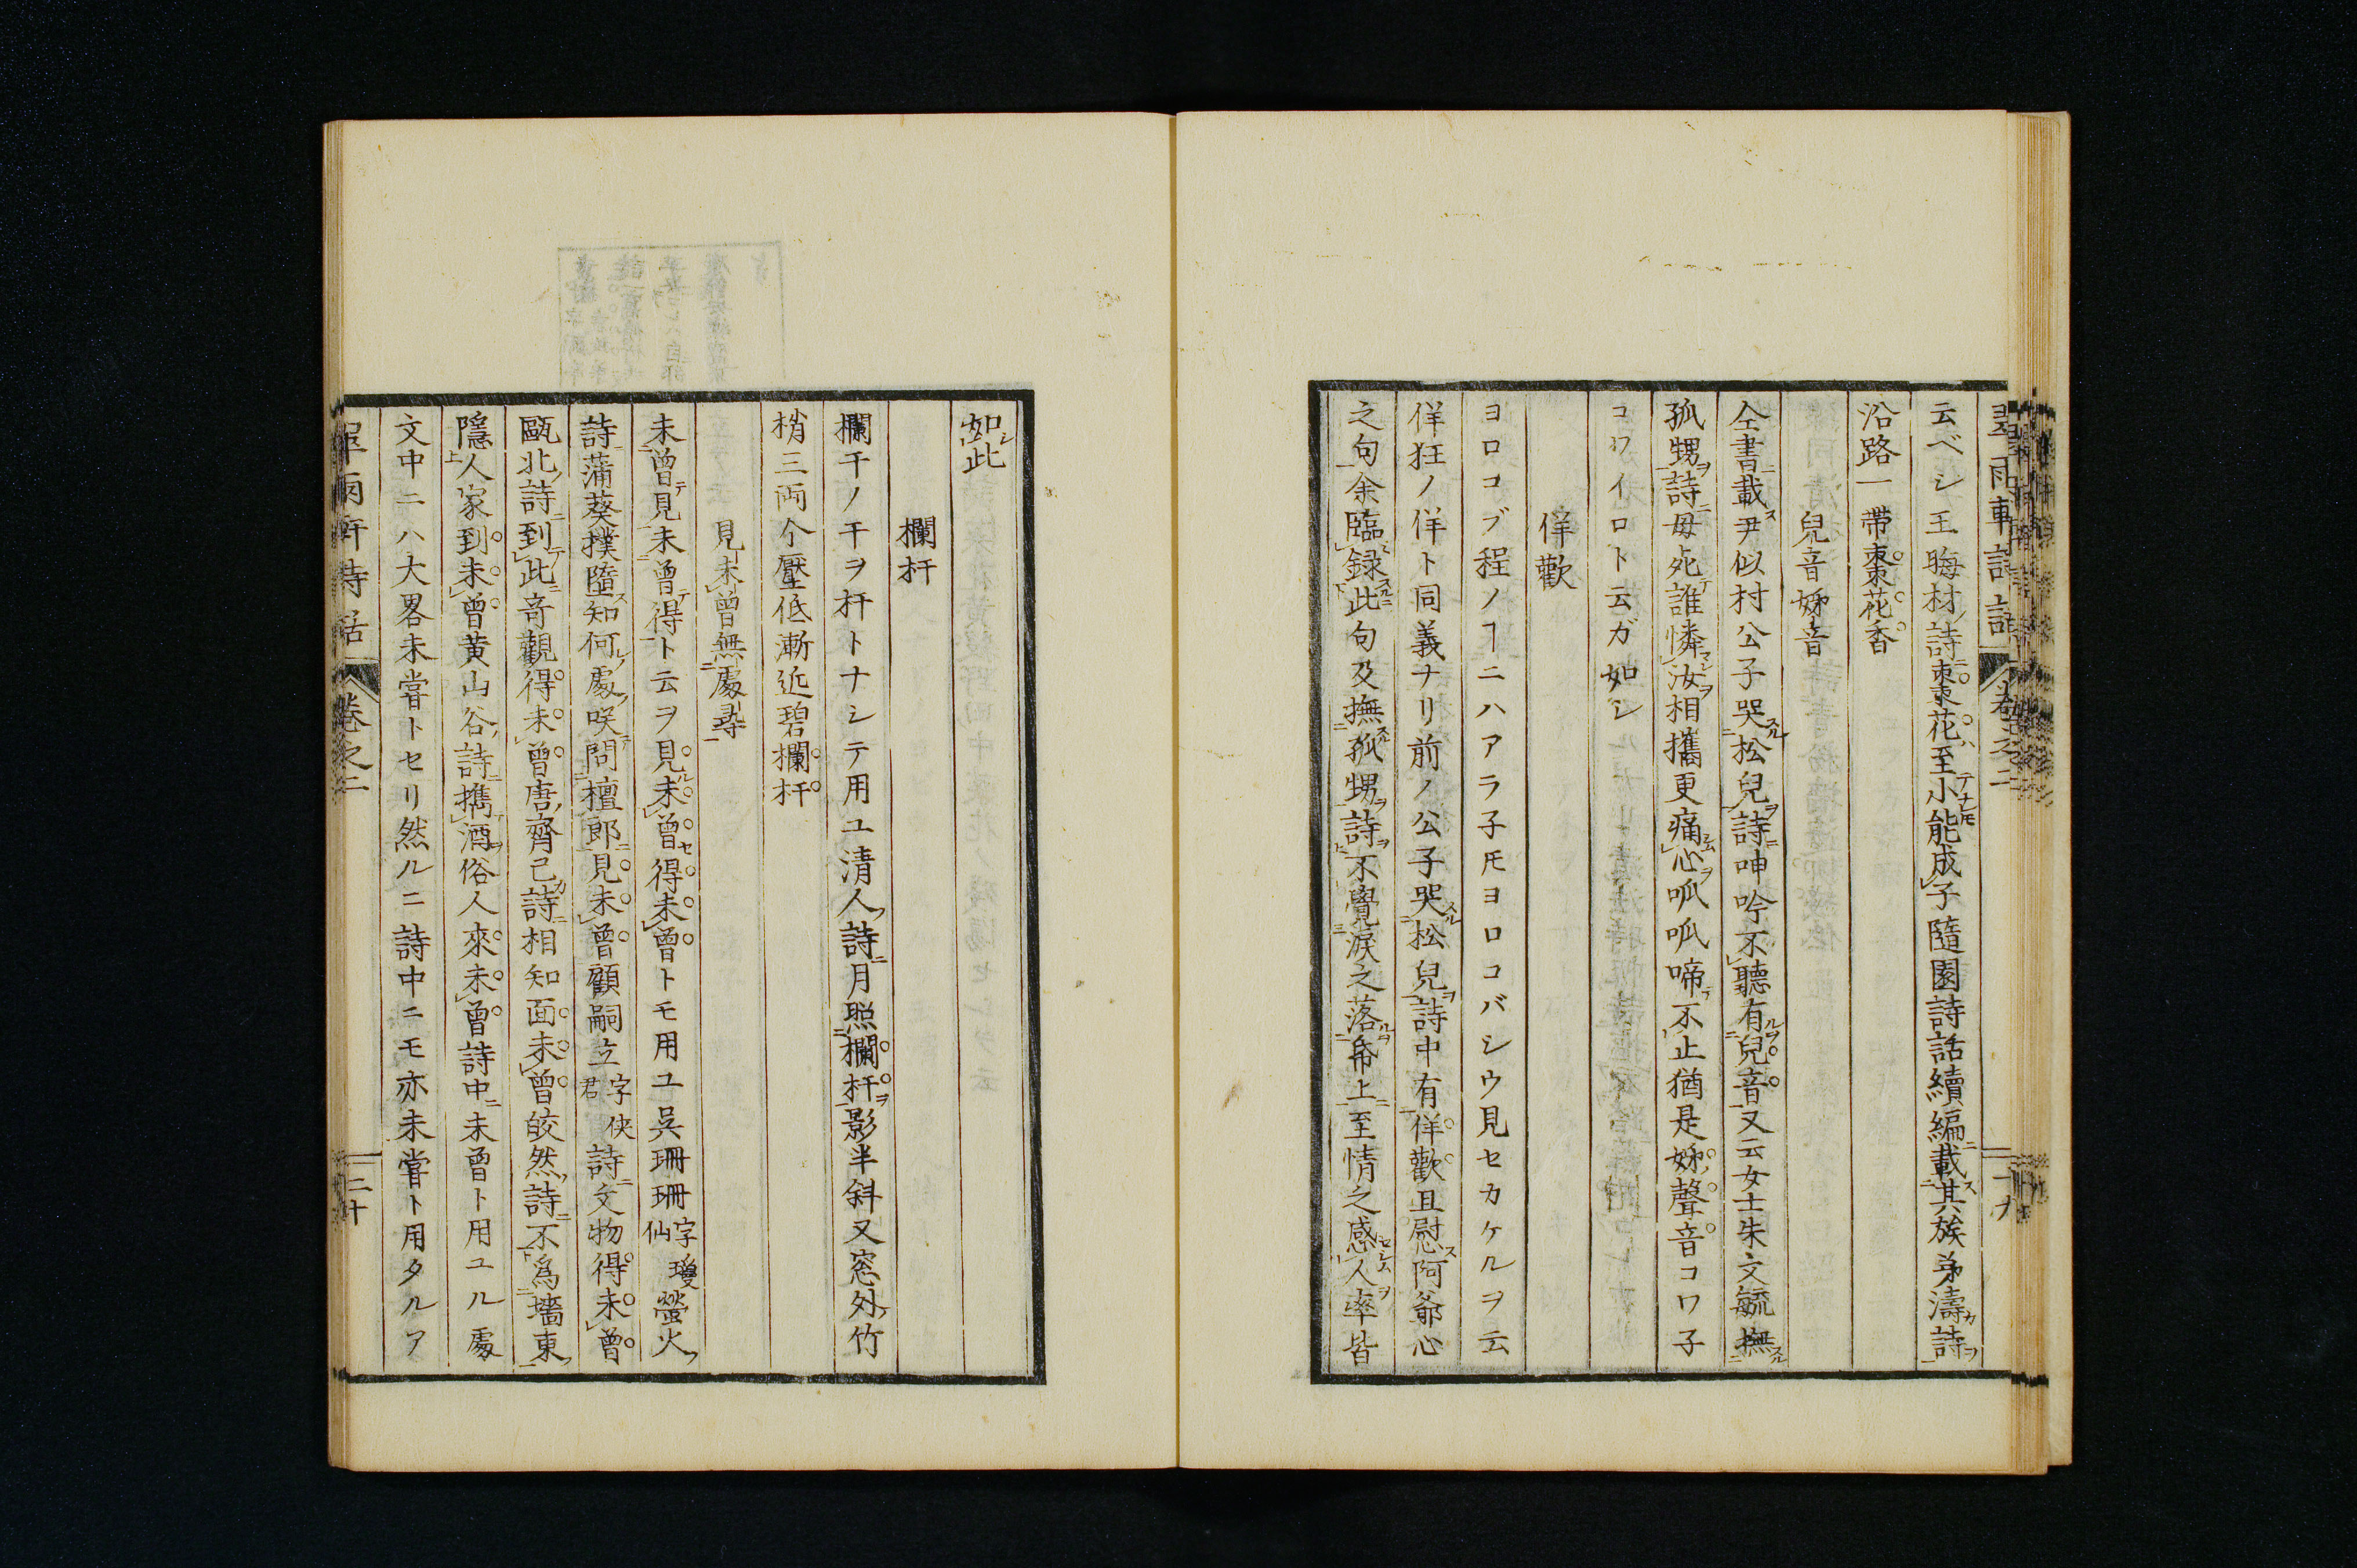 云ベシ王晦材ノ詩ニ棗花ハ至テ小ナレ𪜈能成子隨園詩話續編ニ載ス其族弟濤カ詩ヲ
沿路一帶棗花香
兒音 姊音
仝書ニ載ス尹似村公子哭スル松兒ヲ詩ニ呻吟不聽有ルヲ兒音又云女士朱文毓撫スル
孤甥ヲ詩ニ母死テ誰憐マレ汝ヲ相攜更痛ム心ヲ呱呱啼テ不止猶是姊ノ聲音コワ子
コワイロト云ガ如シ
佯歡
ヨロコブ程ノヿニハアラ子𪜈ヨロコバシウ見セカケルヲ云
佯狂ノ佯ト同義ナリ前ノ公子哭スル松兒ヲ詩中有佯歡且慰ス阿爺心
之句余臨錄スルニ此句及撫スル孤甥ヲ詩ヲ不覺淚之落ルヲ帋上ニ至情之感セシムル人ヲ率皆
如此
欄杆
欄干ノ干ヲ杆トナシテ用ユ清人ノ詩ニ月照欄杆ヲ影半斜又窓外ノ竹
梢三両个壓低漸近碧欄杆
見未曾無處尋
未曾テ見未曾テ得ト云ヲ見ル未曾セ得未曾トモ用ユ吳珊珊字瓊仙螢火ノ
詩ニ蒲葵撲墮ス知何ルノ處ノ咲テ問檀郎ニ見未曾顧嗣立字俠君詩ニ文物得未曾
甌北ノ詩ニ到テ此ニ奇觀得未曾唐ノ齊己カ詩ニ相知面未曾皎然ノ詩ニ不爲墻東ノ
隱人家到未曾黄山谷ノ詩ニ攜酒ヲ俗人來未曾詩中ニ未曾ト用ユル處
文中ニハ大畧未嘗トセリ然ルニ詩中ニモ亦未嘗ト用タルア
卷之二
二十